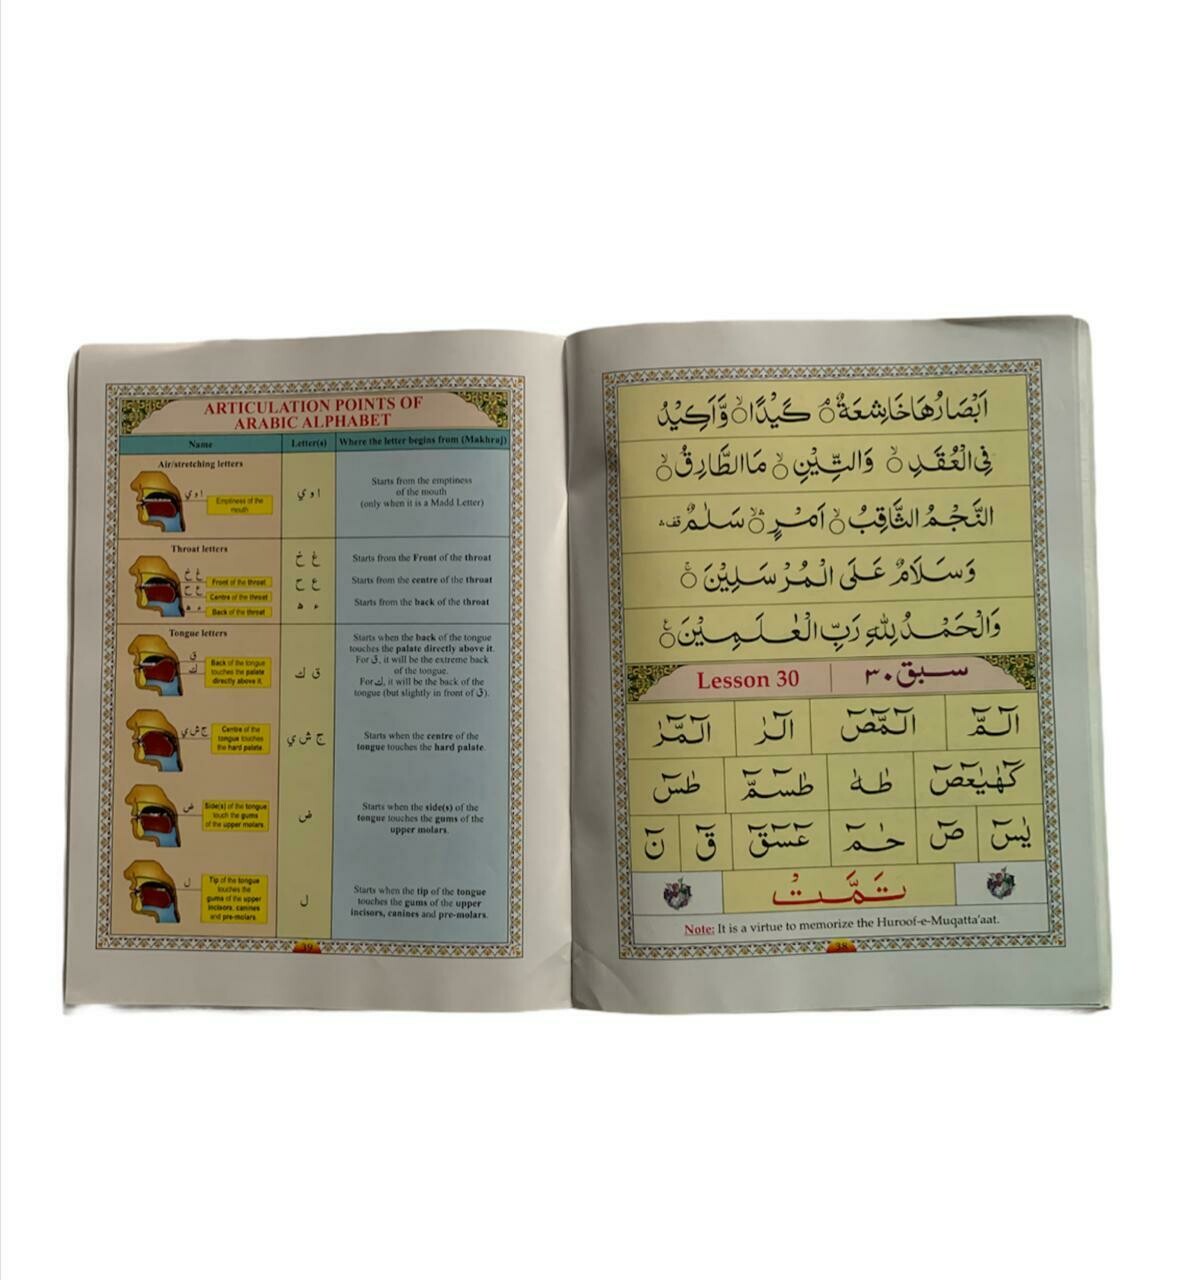 ARTICULATION POINTS OF
ARABIC ALPHABET
Name
Letter(s)
Where the letter begins from (Makhraj)
Air/stretching letters
ا و ي
Emptiness of the
mouth
ا و ي
Starts from the emptiness
of the mouth
(only when it is a Madd Letter)
Throat letters
غ خ
Front of the throat
ع ح
Centre of the throat
ء ه
Back of the throat
غ خ
Starts from the Front of the throat
ع ح
Starts from the centre of the throat
ء ه
Starts from the back of the throat
Tongue letters
ق
ك
Back of the tongue
touches the palate
directly above it.
ق ك
Starts when the back of the tongue
touches the palate directly above it.
For ق, it will be the extreme back
of the tongue.
For ك, it will be the back of the
tongue (but slightly in front of ق).
ج ش ي
Centre of the
tongue touches
the hard palate.
ج ش ي
Starts when the centre of the
tongue touches the hard palate.
ض
Side(s) of the tongue
touch the gums
of the upper molars.
ض
Starts when the side(s) of the
tongue touches the gums of the
upper molars.
ل
Tip of the tongue
touches the
gums of the upper
incisors, canines
and pre-molars.
ل
Starts when the tip of the tongue
touches the gums of the upper
incisors, canines and pre-molars.
39
اَبْصَارُهَا خَاشِعَةٌ ۘ كَيْدًا ۙ وَّاَكِيْدُ
فِى الْعُقَدِ ۙ وَالتِّيْنِ ۙ مَا الطَّارِقُ ۙ
النَّجْمُ الثَّاقِبُ ۙ اَمْرٍ ۛۙ سَلٰمٌ ۛ قف
وَسَلَامٌ عَلَى الْمُرْسَلِيْنَ ۚ
وَالْحَمْدُ لِلّٰهِ رَبِّ الْعٰلَمِيْنَ ۧ
Lesson 30
سبق ۳۰
الٓمّٓ الٓمّٓصٓ الٓرٰ الٓمّٓرٰ
كٓهٰيٰعٓصٓ طٰهٰ طٰسٓمّٓ طٰسٓ
يٰسٓ صٓ حٰمٓ عٓسٓقٓ قٓ نٓ
تَمَّتْ
Note: It is a virtue to memorize the Huroof-e-Muqatta'aat.
38